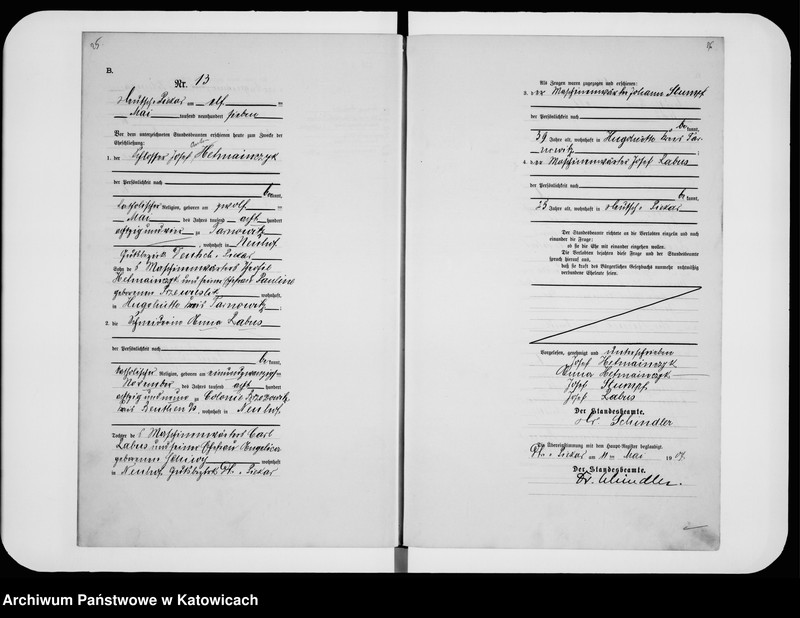 B.
Nr. 13
Deutsch-Piekar am elf ten
Mai tausend neunhundert sieben
Vor dem unterzeichneten Standesbeamten erschienen heute zum Zwecke der
Eheschließung:
1. der Schlosser Josef Hetmainczyk
der Persönlichkeit nach
be kannt,
katholischer Religion, geboren am zwölf ten
Mai des Jahres tausend acht hundert
achtzig und zu Tarnowitz
, wohnhaft in Neuhof
Gutsbezirk Deutsch-Piekar
Sohn des Maschinenwärters
Hetmainczyk und seiner Ehefrau Pauline
geborenen wohnhaft
in Hugohütte Kreis Tarnowitz ;
2. die Schneiderin Anna Labus
der Persönlichkeit nach
be kannt,
katholischer Religion, geboren am einundzwanzigsten
November des Jahres tausend acht hundert
achtzig und neun zu Colonie
Kreis Beuthen O/S, wohnhaft in Neuhof
Tochter des Maschinenwärters Carl
Labus und seiner Ehefrau Angelica
geborenen wohnhaft
in Neuhof, Gutsbezirk Dt. Piekar
Als Zeugen waren zugezogen und erschienen:
3. der Maschinenwärter Johann Stumpf
der Persönlichkeit nach
be kannt,
39 Jahre alt, wohnhaft in Hugohütte Kreis Tar-
nowitz ;
4. der Maschinenwärter Josef Labus
der Persönlichkeit nach
be kannt,
23 Jahre alt, wohnhaft in Deutsch-Piekar
Der Standesbeamte richtete an die Verlobten einzeln und nach
einander die Frage:
ob sie die Ehe mit einander eingehen wollen.
Die Verlobten bejahten diese Frage und der Standesbeamte
sprach hierauf aus,
daß sie kraft des Bürgerlichen Gesetzbuchs nunmehr rechtmäßig
verbundene Eheleute seien.
Vorgelesen, genehmigt und unterschrieben
Josef Hetmainczyk
Anna Hetmainczyk
Josef Stumpf
Josef Labus
Der Standesbeamte.
Dr. Schindler
Die Übereinstimmung mit dem Haupt-Register beglaubigt.
Dt. Piekar am 11 ten Mai 1907.
Der Standesbeamte.
Dr. Schindler.
Archiwum Państwowe w Katowicach